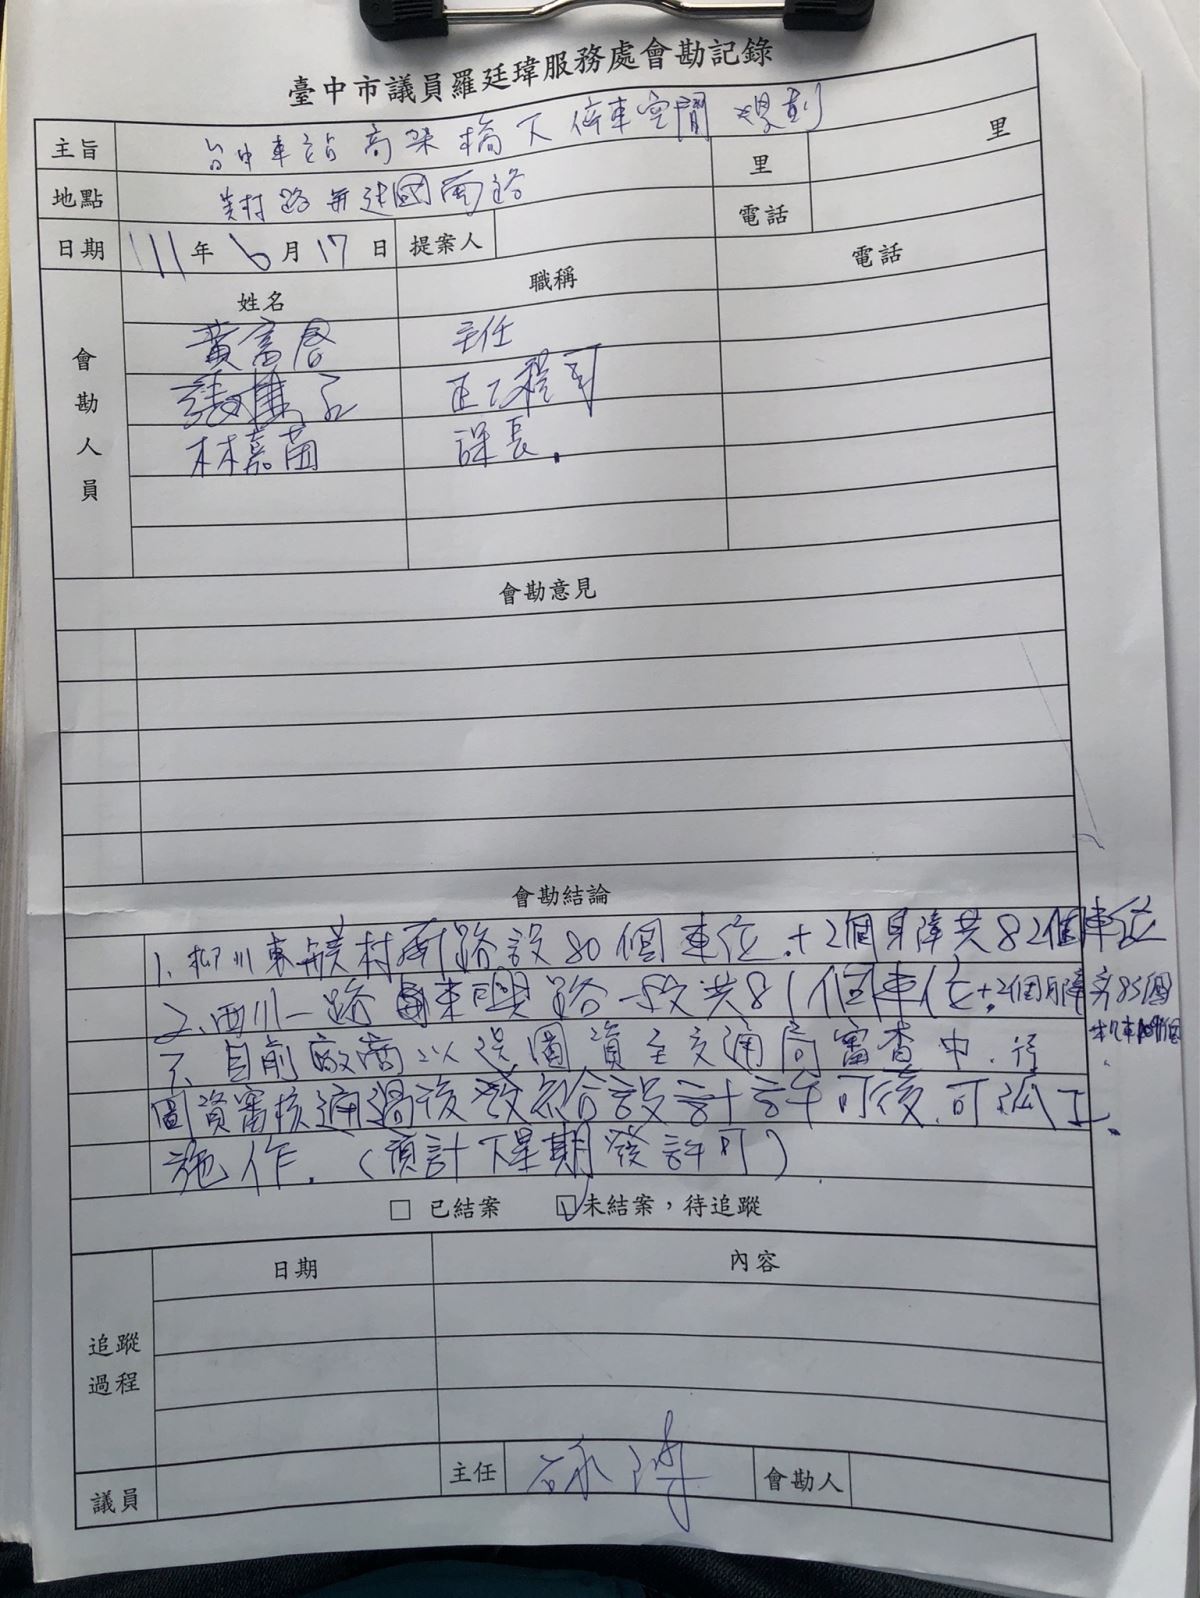 臺中市議員羅廷瑋服務處會勘記錄
主旨 台中車站高架橋下停車空間規劃 里 里
地點 美村路與建國南路 電話
日期 111年6月17日 提案人
會勘人員 姓名 職稱 電話
黃富 主任
張 正工程司
林嘉茵 課長.
會勘意見
會勘結論
1. 柳川東 美村南路設80個車位.+2個身障共82個車位
2. 西川一路 東興路一段共81個車位.+2個身障
3. 目前廠商以送圖資至交通局審查中.
圖資審核通過後 符合設計許可後.可
施作.(預計下星期發許可)
□ 已結案 ☑未結案,待追蹤
追蹤過程 日期 內容
議員 主任 會勘人